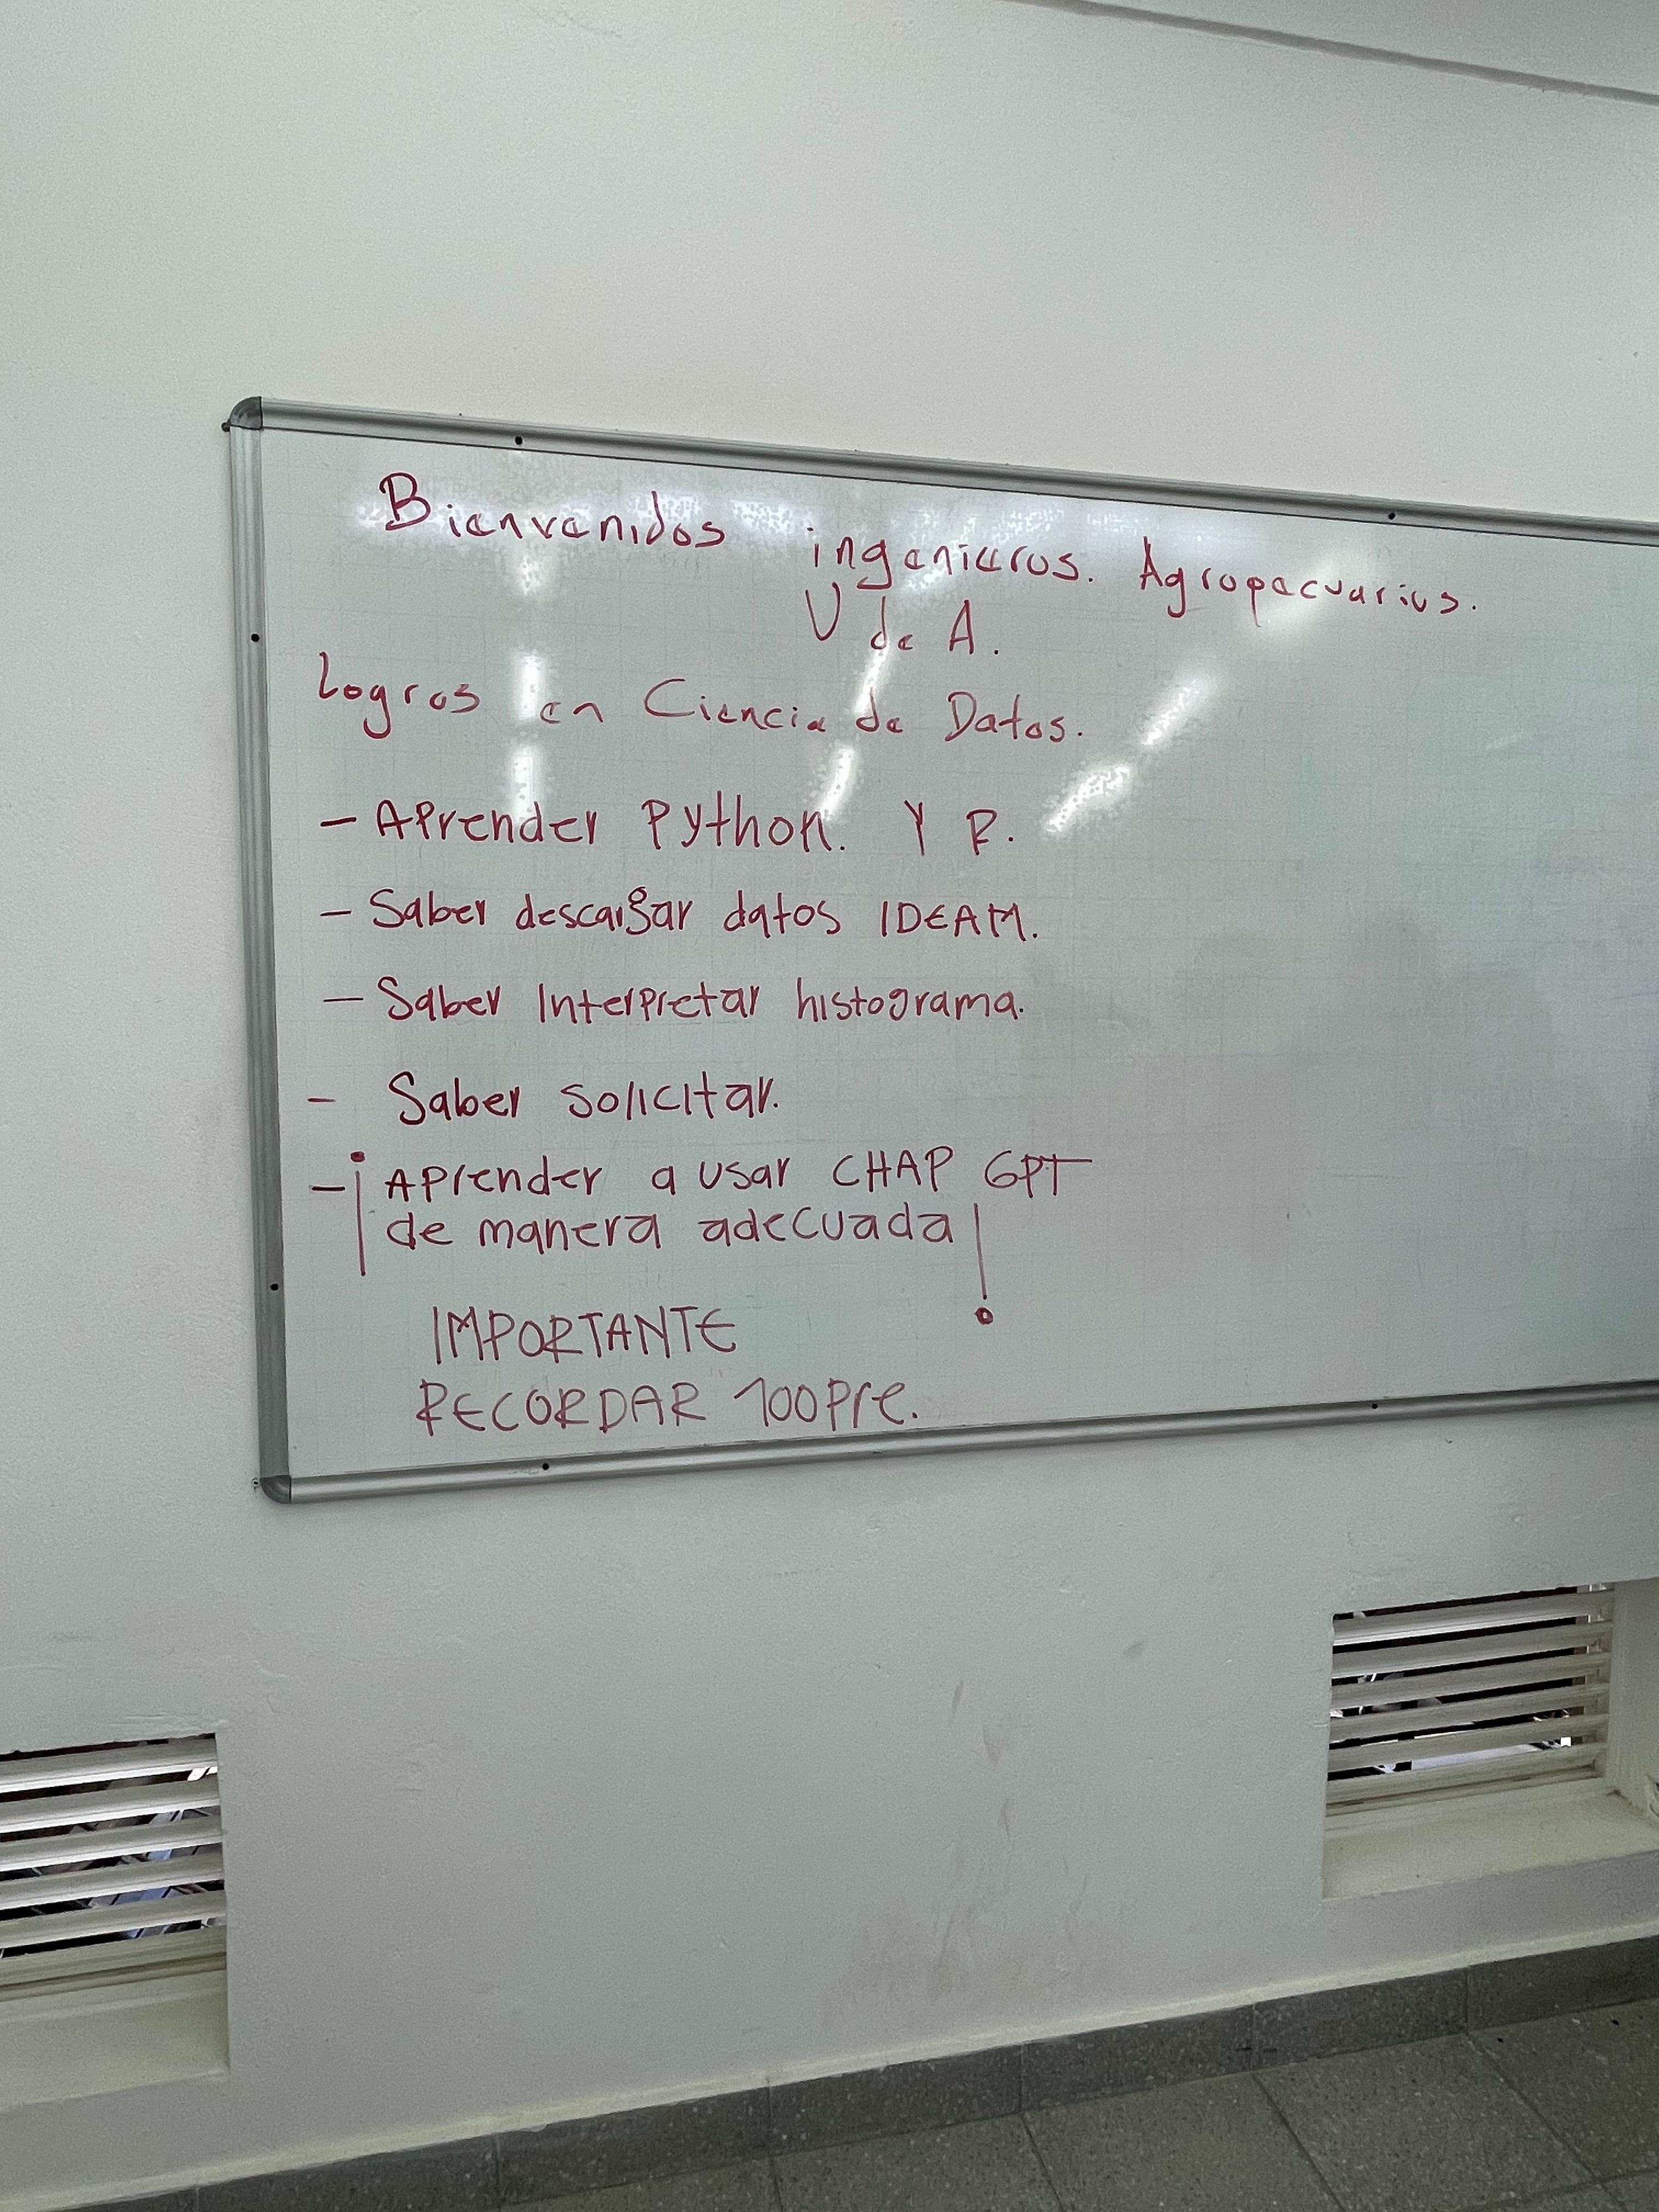 Bienvenidos ingenieros. Agropecuarios.
U de A.
Logros en Ciencia de Datos.
- Aprender Python. Y R.
- Saber descargar datos IDEAM.
- Saber Interpretar histograma.
- Saber solicitar.
- ¡Aprender a usar CHAP GPT
de manera adecuada!
IMPORTANTE
RECORDAR 100Pre.